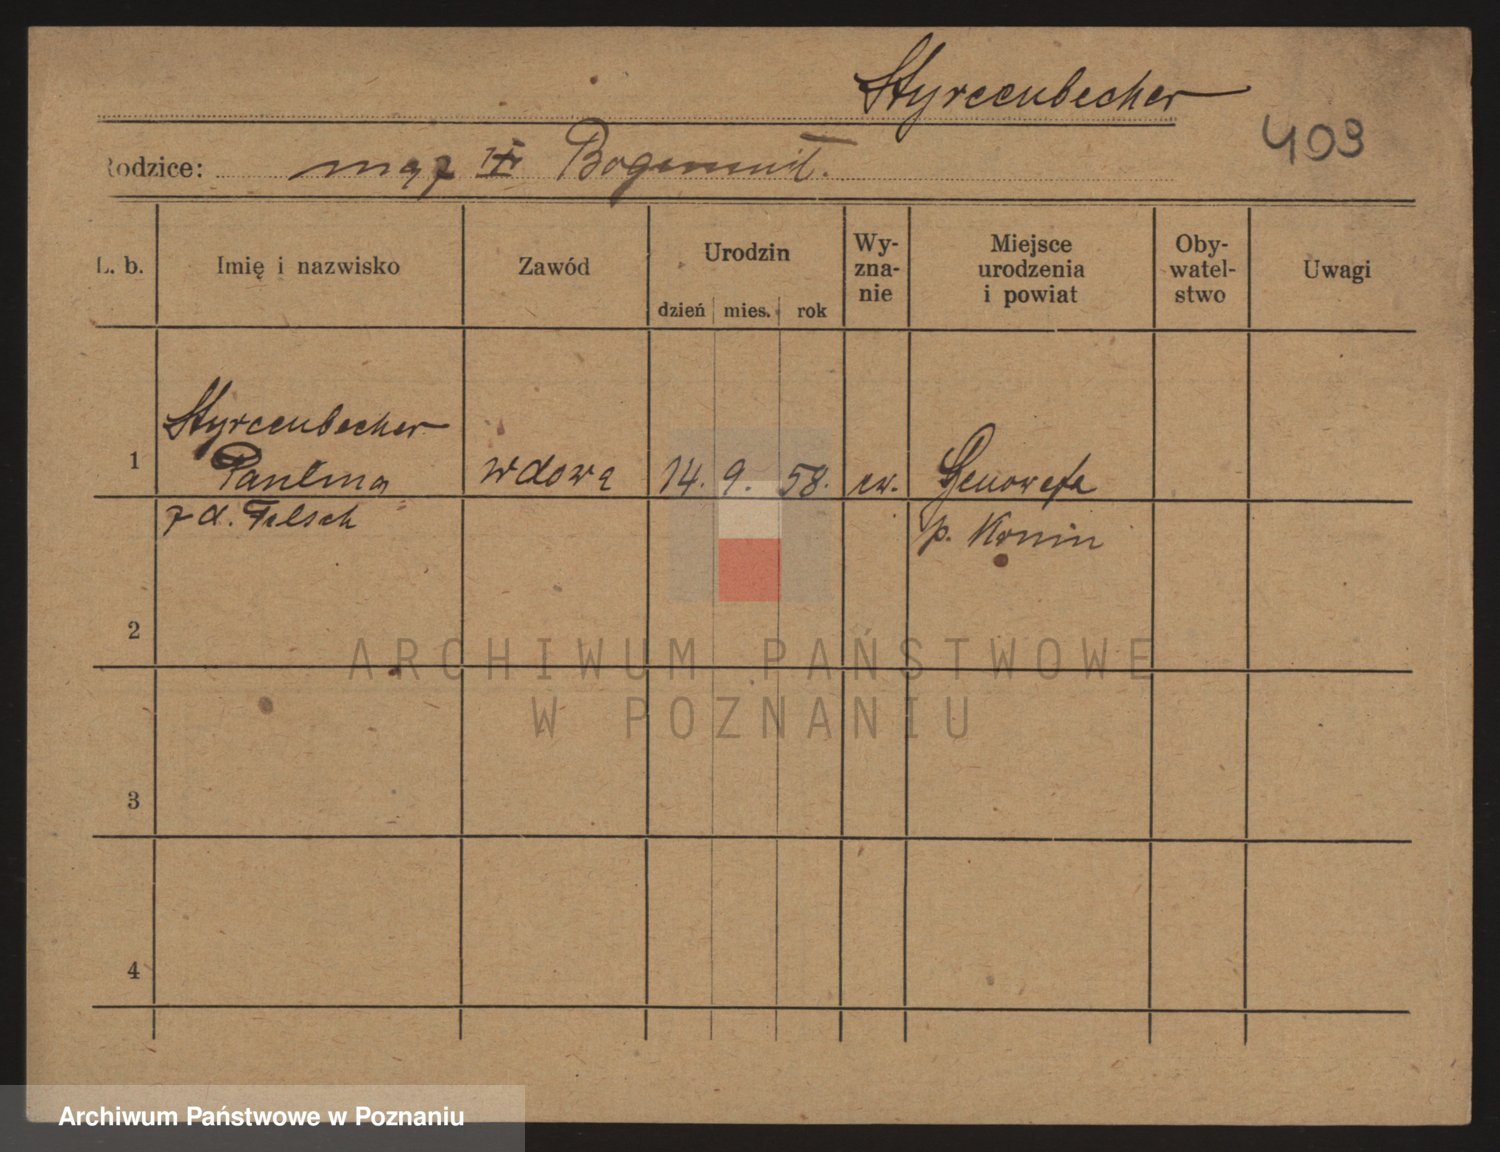 Styrcenbecher
403
Rodzice: mąż Bogumił.
L. b. Imię i nazwisko Zawód Urodzin dzień mies. rok Wy-zna-nie Miejsce urodzenia i powiat Oby-watel-stwo Uwagi
Styrcenbecher
1 Paulina wdowa 14. 9. 58. ew. Genowefa
z d. Felsch p. Konin
2
ARCHIWUM PAŃSTWOWE
W POZNANIU
3
4
Archiwum Państwowe w Poznaniu